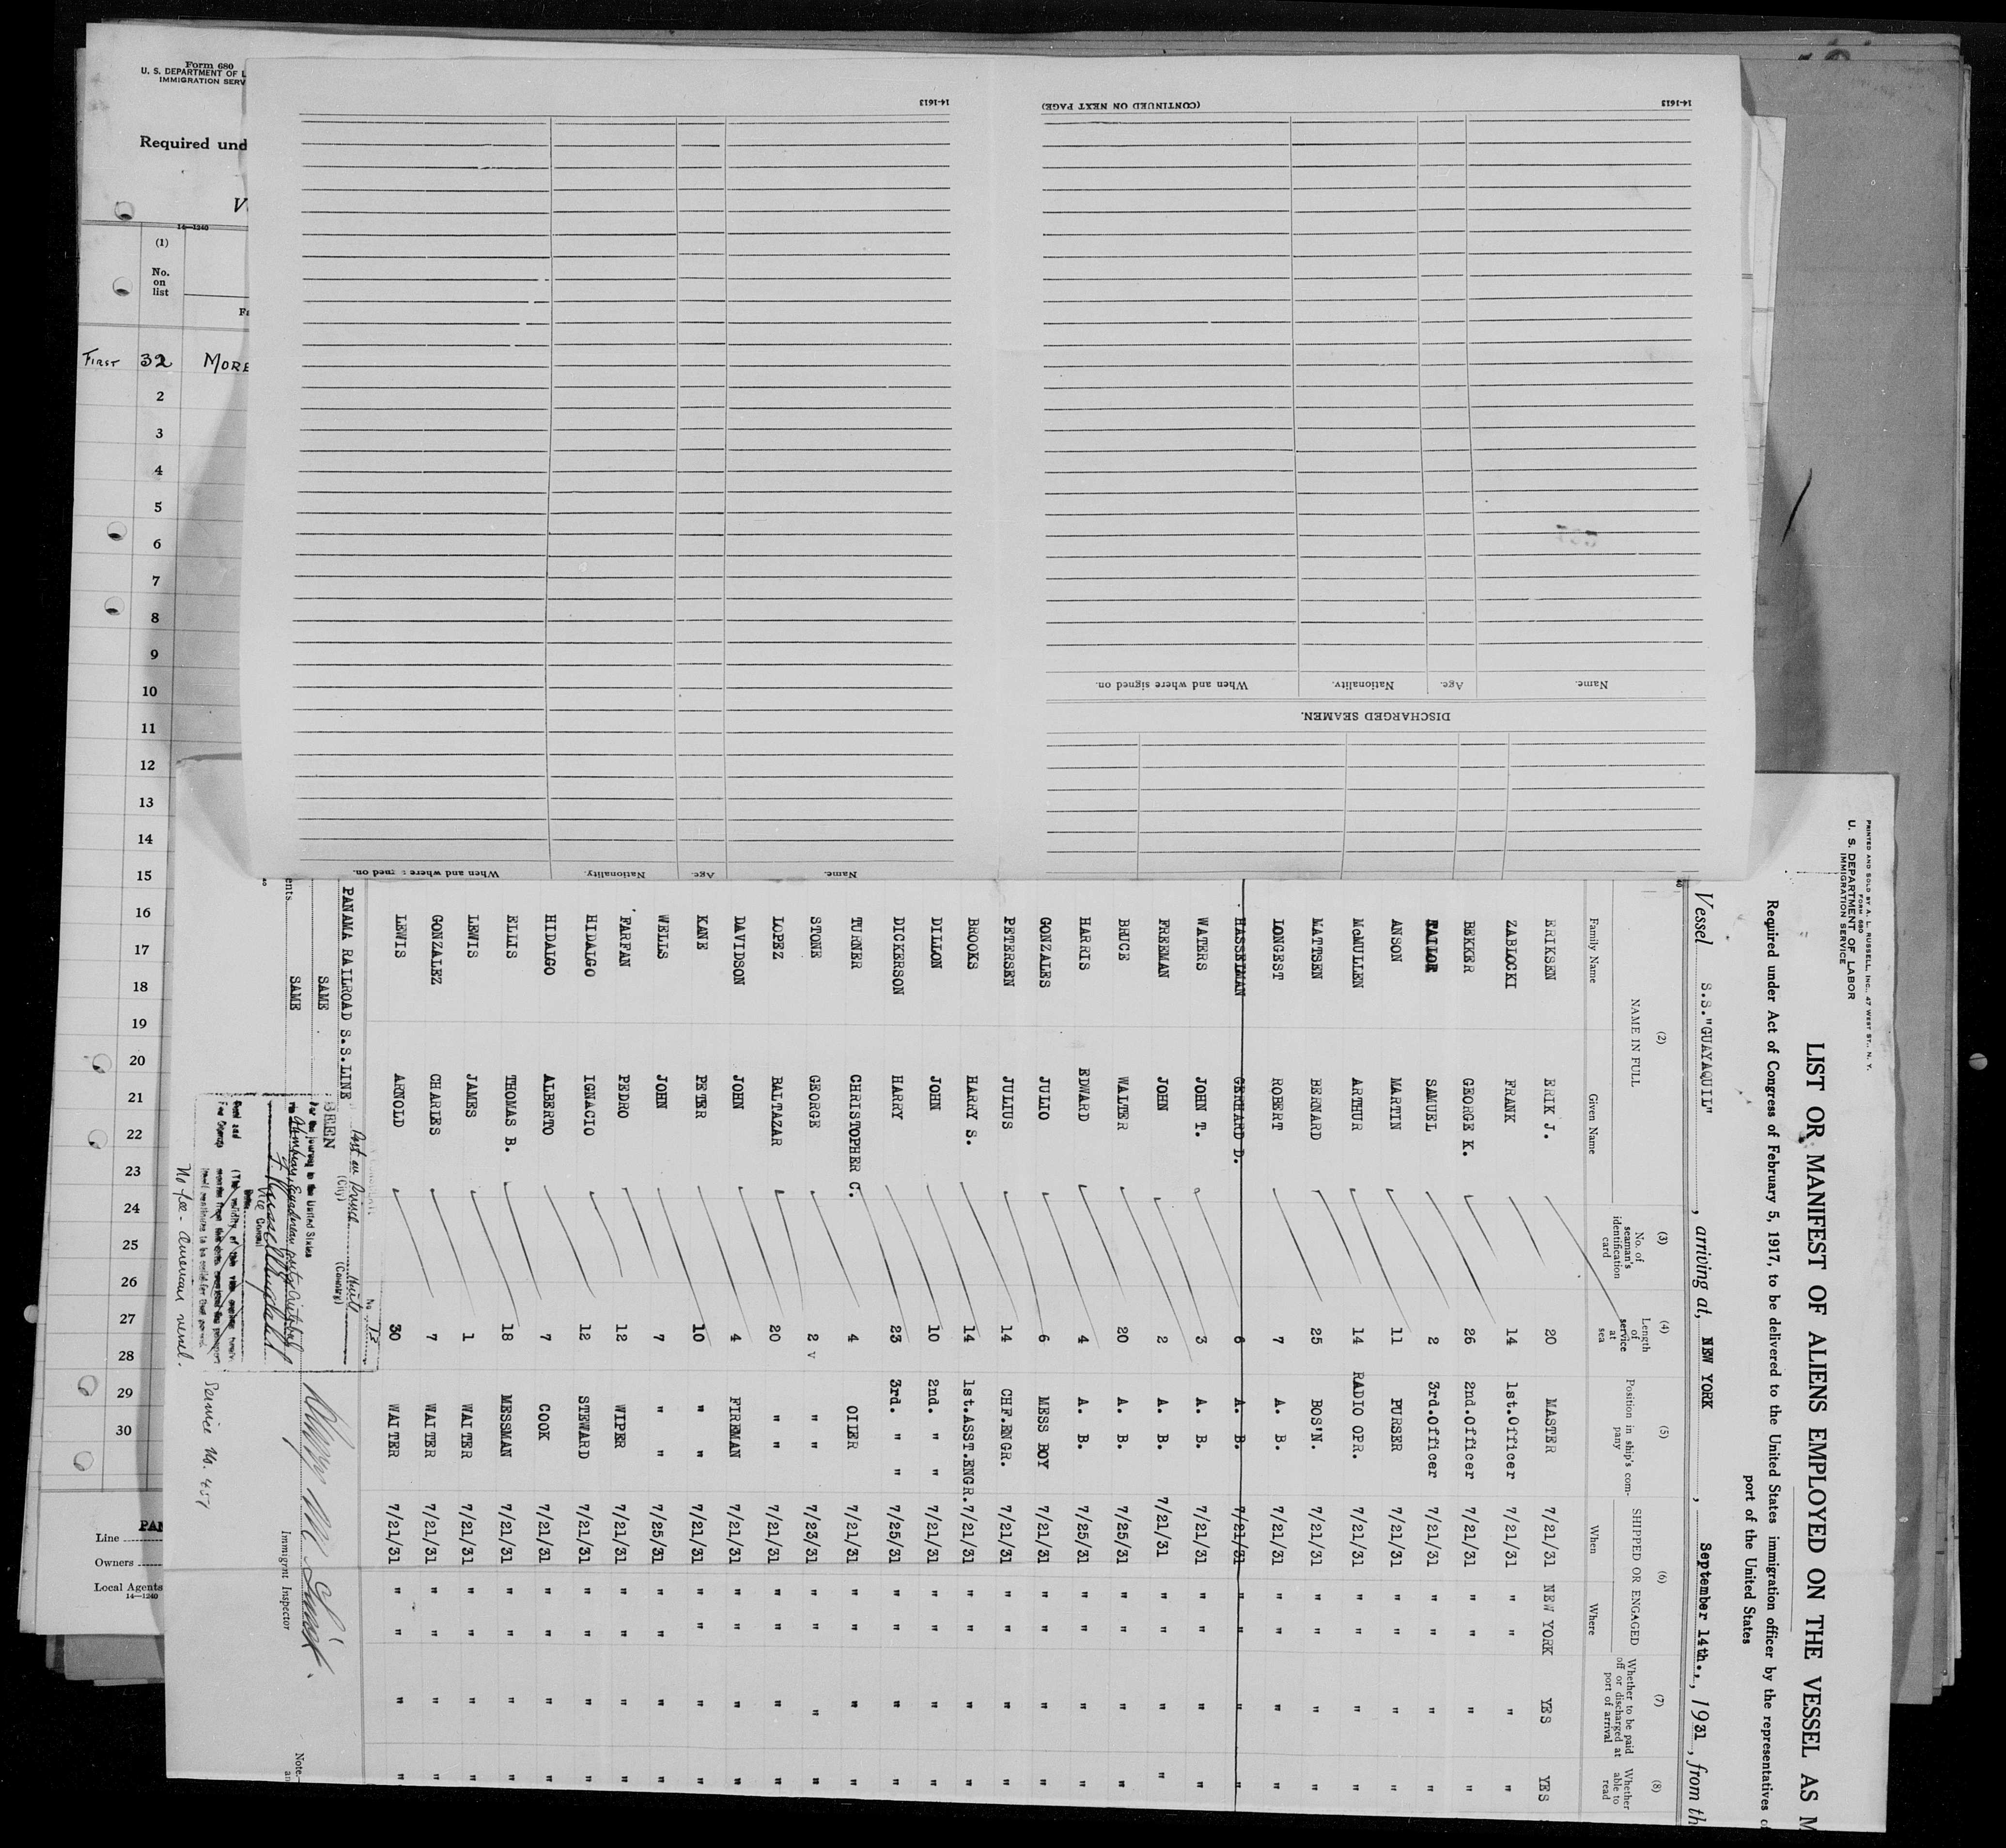 Form 680
U. S. DEPARTMENT OF L
IMMIGRATION SERV
Required und
V
14—1240
(1)
No.
on
list
Fa
FIRST 32 MORE
2
3
4
5
6
7
8
9
10
11
12
13
14
15
16
17
18
19
20
21
22
23
24
25
26
27
28
29
30
PAN
Line
Owners
Local Agents
14—1240
14-1613
(CONTINUED ON NEXT PAGE)
14-1613
DISCHARGED SEAMEN.
Name. Age. Nationality. When and where signed on.
Name. Age. Nationality. When and where signed on.
PRINTED AND SOLD BY A. L. RUSSELL, INC., 47 WEST ST., N. Y.
FORM 680
U. S. DEPARTMENT OF LABOR
IMMIGRATION SERVICE
LIST OR MANIFEST OF ALIENS EMPLOYED ON THE VESSEL AS M
Required under Act of Congress of February 5, 1917, to be delivered to the United States immigration officer by the representatives of
port of the United States
Vessel S.S."GUAYAQUIL", arriving at, NEW YORK, September 14th., 1931, from th
(2) (3) (4) (5) (6) (7) (8)
NAME IN FULL No. of seaman's identification card Length of service at sea Position in ship's company SHIPPED OR ENGAGED Whether to be paid off or discharged at port of arrival Whether able to read
Family Name Given Name When Where
ERIKSEN ERIK J. 20 MASTER 7/21/31 NEW YORK YES YES
ZABLOCKI FRANK 14 1st.Officer 7/21/31 " " " "
BEKKER GEORGE K. 26 2nd.Officer 7/21/31 " " " "
TAILOR SAMUEL 2 3rd.Officer 7/21/31 " " " "
ANSON MARTIN 11 PURSER 7/21/31 " " " "
McMULLEN ARTHUR 14 RADIO OPR. 7/21/31 " " " "
MATTSEN BERNARD 25 BOS'N. 7/21/31 " " " "
LONGEST ROBERT 7 A. B. 7/21/31 " " " "
HASSELMAN GERHARD D. 6 A. B. 7/21/31 " " " "
WATERS JOHN T. 3 A. B. 7/21/31 " " " "
FREEMAN JOHN 2 A. B. 7/21/31 " " " "
BRUCE WALTER 20 A. B. 7/25/31 " " " "
HARRIS EDWARD 4 A. B. 7/25/31 " " " "
GONZALES JULIO 6 MESS BOY 7/21/31 " " " "
PETERSEN JULIUS 14 CHF.ENGR. 7/21/31 " " " "
BROOKS HARRY S. 14 1st.ASST.ENGR. 7/21/31 " " " "
DILLON JOHN 10 2nd. " " 7/21/31 " " " "
DICKERSON HARRY 23 3rd. " " 7/25/31 " " " "
TURNER CHRISTOPHER C. 4 OILER 7/21/31 " " " "
STONE GEORGE 2 v " " 7/23/31 " " " "
LOPEZ BALTAZAR 20 " " 7/21/31 " " " "
DAVIDSON JOHN 4 FIREMAN 7/21/31 " " " "
KANE PETER 10 " " 7/21/31 " " " "
WELLS JOHN 7 " " 7/25/31 " " " "
FARFAN PEDRO 12 WIPER 7/21/31 " " " "
HIDALGO IGNACIO 12 STEWARD 7/21/31 " " " "
HIDALGO ALBERTO 7 COOK 7/21/31 " " " "
ELLIS THOMAS B. 18 MESSMAN 7/21/31 " " " "
LEWIS JAMES 1 WAITER 7/21/31 " " " "
GONZALEZ CHARLES 7 WAITER 7/21/31 " " " "
LEWIS ARNOLD 30 WAITER 7/21/31 " " " "
PANAMA RAILROAD S.S.LINE
SAME
ents SAME
No. 13
Port au Prince Haiti
(City) (Country)
SEEN
For the journey to the United States
Vice Consul
No fee - American vessel.
Service No. 457
Immigrant Inspector
Note.—
an